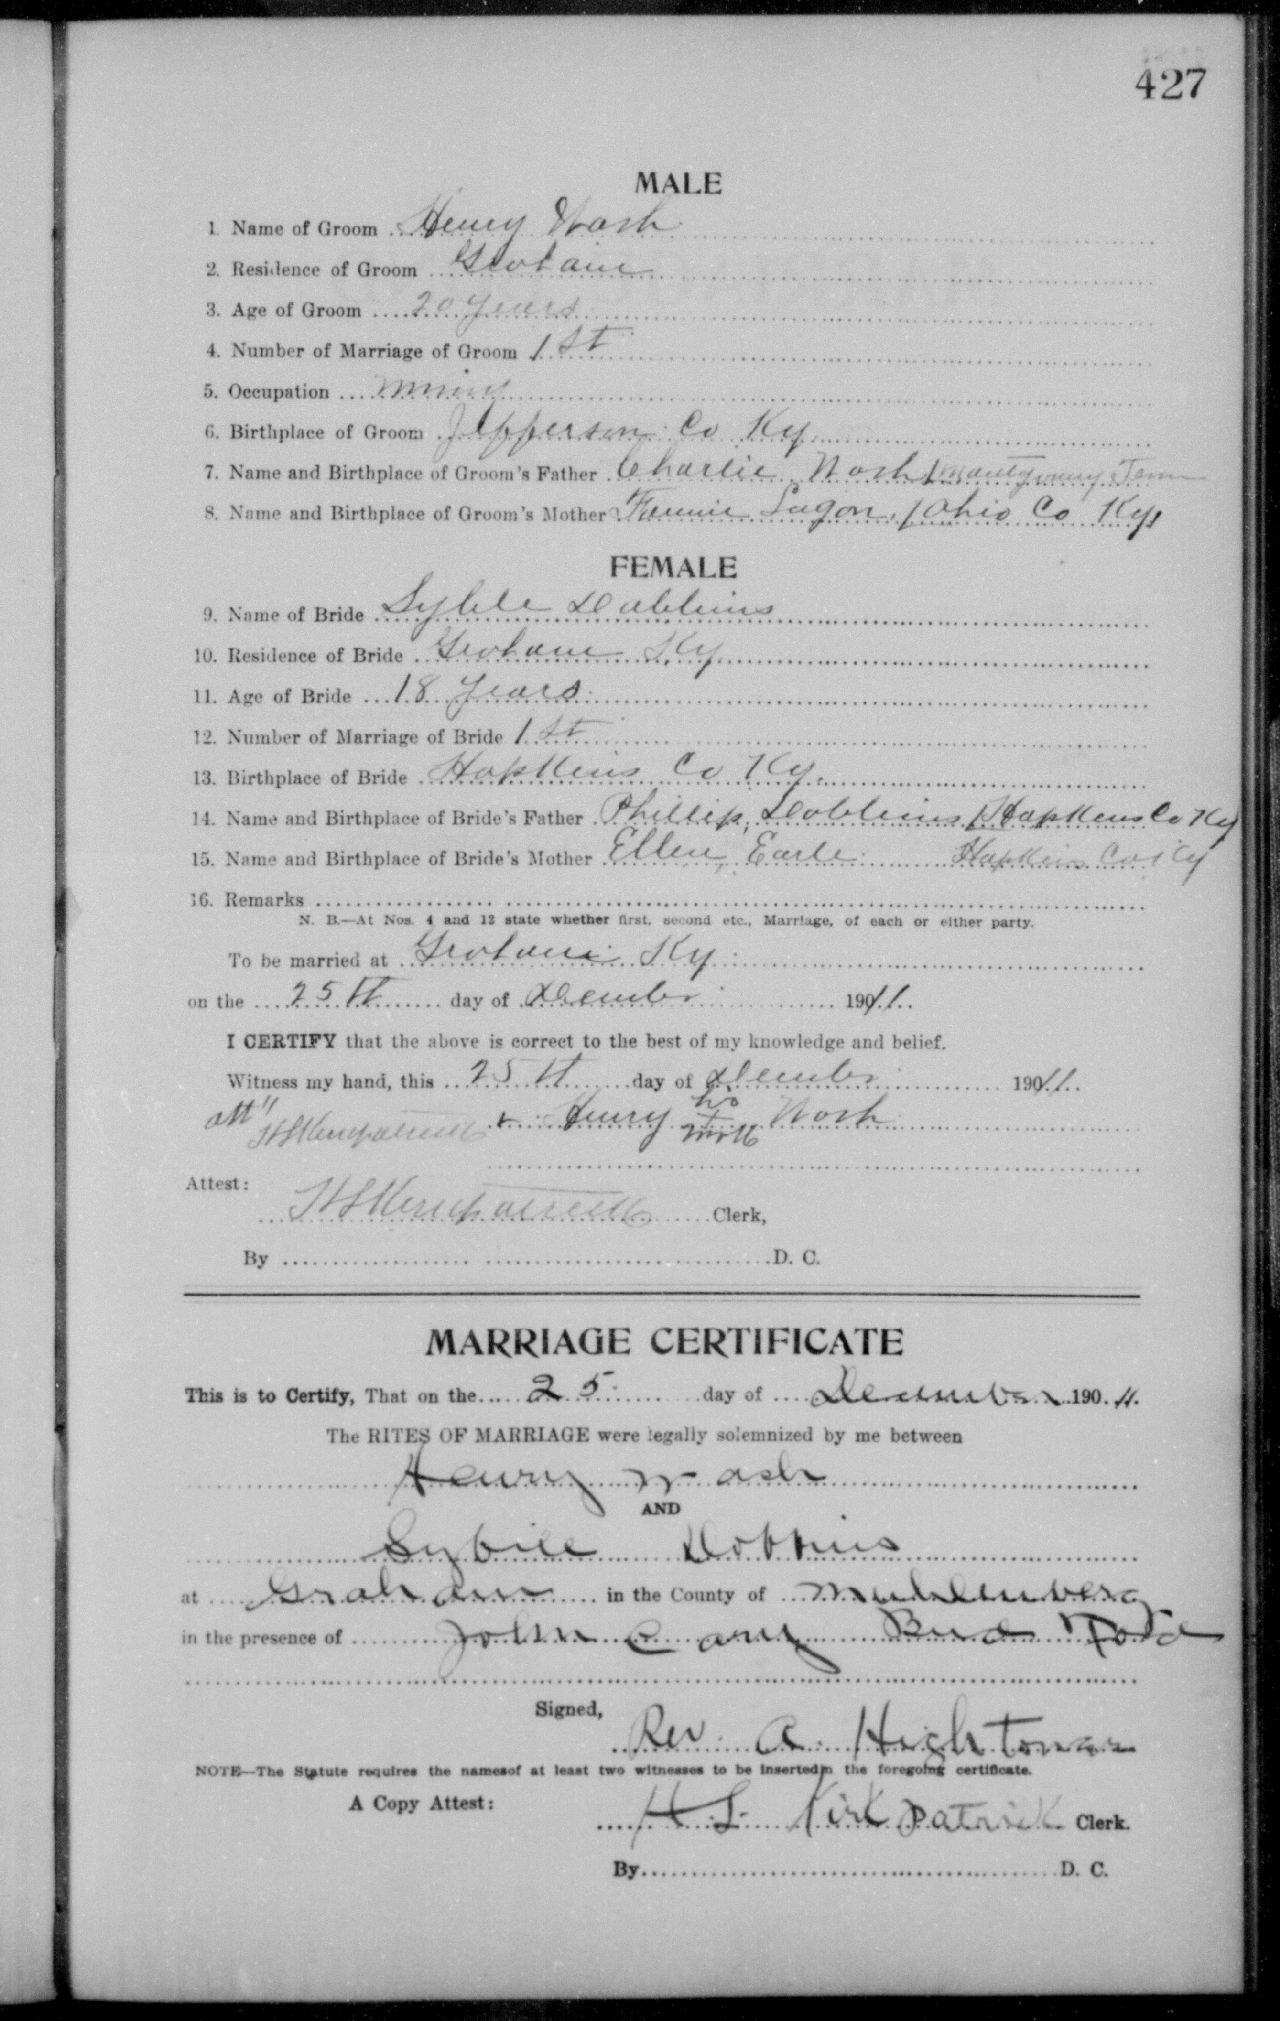 427
MALE
1 Name of Groom Henry Wash
2. Residence of Groom Graham
3. Age of Groom 20 years
4. Number of Marriage of Groom 1st
5. Occupation mining
6. Birthplace of Groom Jefferson Co Ky
7. Name and Birthplace of Groom's Father Charlie Wash / Montgomery Tenn
8. Name and Birthplace of Groom's Mother Fannie / Ohio Co Ky
FEMALE
9. Name of Bride Dobbins
10. Residence of Bride Graham Ky
11. Age of Bride 18 years
12. Number of Marriage of Bride 1st
13. Birthplace of Bride Hopkins Co Ky.
14. Name and Birthplace of Bride's Father Phillip Dobbins / Hopkins Co Ky
15. Name and Birthplace of Bride's Mother Ellen Earle Hopkins Co Ky
16. Remarks
N. B.—At Nos. 4 and 12 state whether first, second etc., Marriage, of each or either party.
To be married at Graham Ky
on the 25th day of December 1911
I CERTIFY that the above is correct to the best of my knowledge and belief.
Witness my hand, this 25th day of December 1911
his
att" H S Kirkpatrick Henry x Wash
mark
Attest:
H S Kirkpatrick Clerk,
By D. C.
MARRIAGE CERTIFICATE
This is to Certify, That on the 25 day of December 190 11.
The RITES OF MARRIAGE were legally solemnized by me between
Henry Wash
AND
Dobbins
at Graham in the County of Muhlenberg
in the presence of John Cary Bud Todd
Signed,
Rev. A. Hightower
NOTE—The Statute requires the namesof at least two witnesses to be insertedin the foregoing certificate.
A Copy Attest:
H S. Kirkpatrick Clerk.
By D. C.